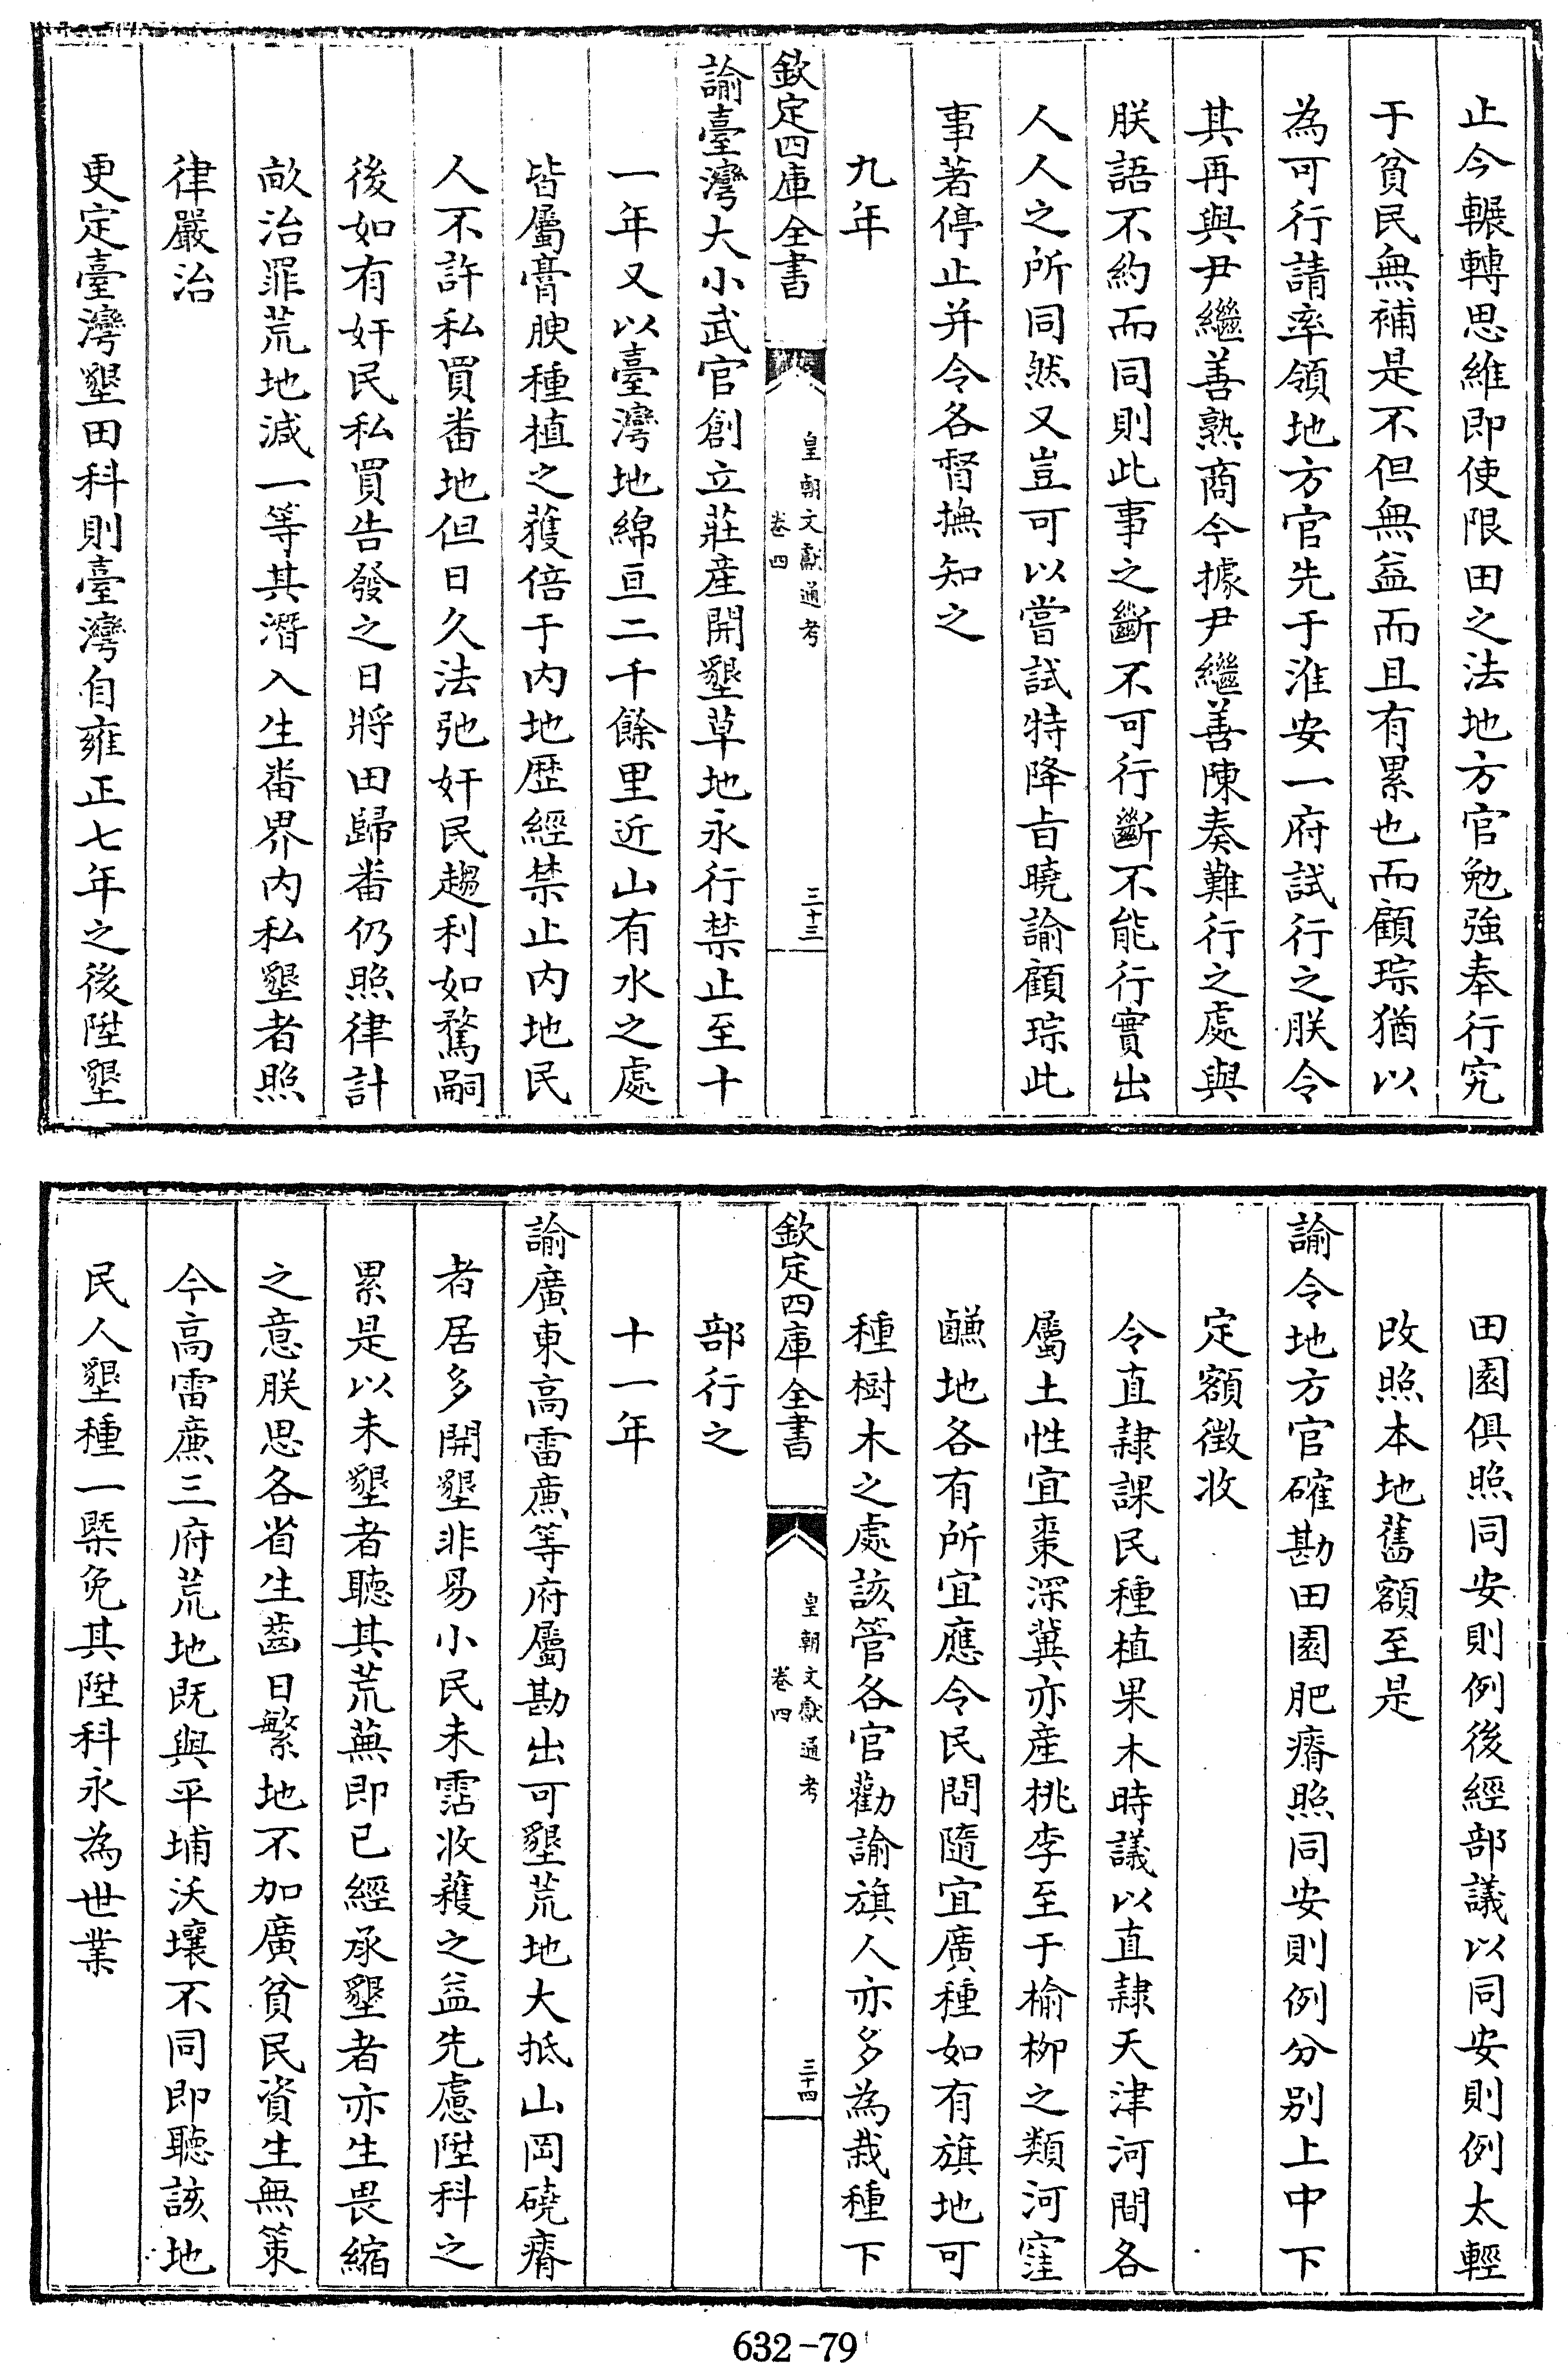 止今輾轉思維即使限田之法地方官勉強奉行究
于貧民無補是不但無益而且有累也而顧琮猶以
為可行請率領地方官先于淮安一府試行之朕令
其再與尹繼善熟商今據尹繼善陳奏難行之處與
朕語不約而同則此事之斷不可行斷不能行實出
人人之所同然又豈可以嘗試特降旨曉諭顧琮此
事著停止并令各督撫知之
九年
欽定四庫全書
皇朝文獻通考
卷四
三十三
諭臺灣大小武官創立莊産開墾草地永行禁止至十
一年又以臺灣地綿亘二千餘里近山有水之處
皆屬膏腴種植之獲倍于内地歴經禁止内地民
人不許私買番地但日久法弛奸民趨利如騖嗣
後如有奸民私買告發之日將田歸番仍照律計
畝治罪荒地減一等其潛入生番界内私墾者照
律嚴治
更定臺灣墾田科則臺灣自雍正七年之後陞墾
田園俱照同安則例後經部議以同安則例太輕
改照本地舊額至是
諭令地方官確勘田園肥瘠照同安則例分别上中下
定額徴收
令直隸課民種植果木時議以直隸天津河間各
屬土性宜棗深冀亦産桃李至于榆柳之類河窪
鹻地各有所宜應令民間隨宜廣種如有旗地可
種樹木之處該管各官勸諭旗人亦多為栽種下
欽定四庫全書
皇朝文獻通考
卷四
三十四
部行之
十一年
諭廣東高雷亷等府屬勘出可墾荒地大抵山岡磽瘠
者居多開墾非易小民未霑收穫之益先慮陞科之
累是以未墾者聽其荒蕪即已經承墾者亦生畏縮
之意朕思各省生齒日繁地不加廣貧民資生無策
今高雷亷三府荒地既與平埔沃壤不同即聽該地
民人墾種一槩免其陞科永為世業
632-79